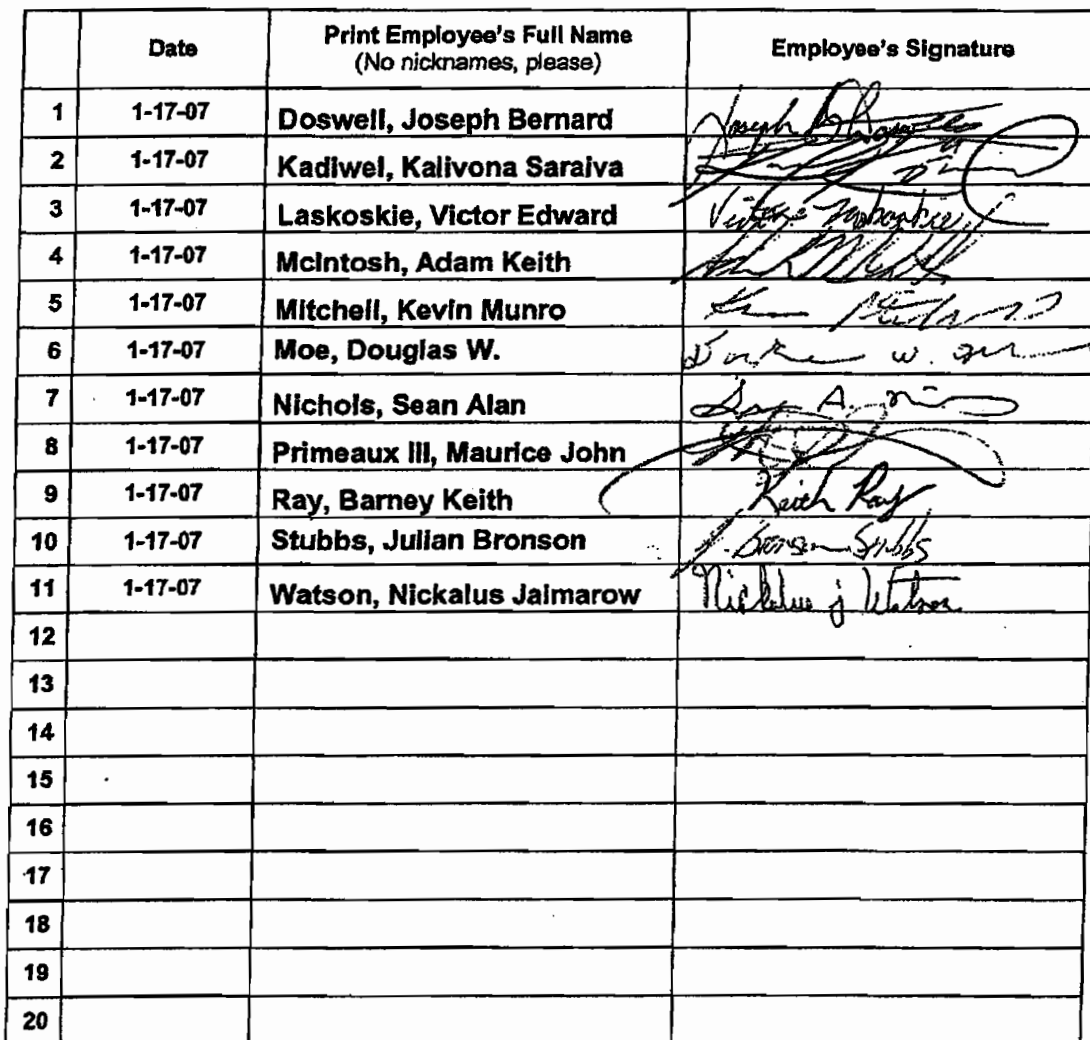 Date Print Employee's Full Name Employee's Signature
(No nicknames, please)
1 1-17-07 Doswell, Joseph Bernard Joseph B
2 1-17-07 Kadiwel, Kalivona Saraiva
3 1-17-07 Laskoskie, Victor Edward
4 1-17-07 McIntosh, Adam Keith
5 1-17-07 Mitchell, Kevin Munro
6 1-17-07 Moe, Douglas W. w.
7 1-17-07 Nichols, Sean Alan A.
8 1-17-07 Primeaux III, Maurice John
9 1-17-07 Ray, Barney Keith Keith Ray
10 1-17-07 Stubbs, Julian Bronson J. Bronson Stubbs
11 1-17-07 Watson, Nickalus Jaimarow Nickalus j Watson
12
13
14
15
16
17
18
19
20